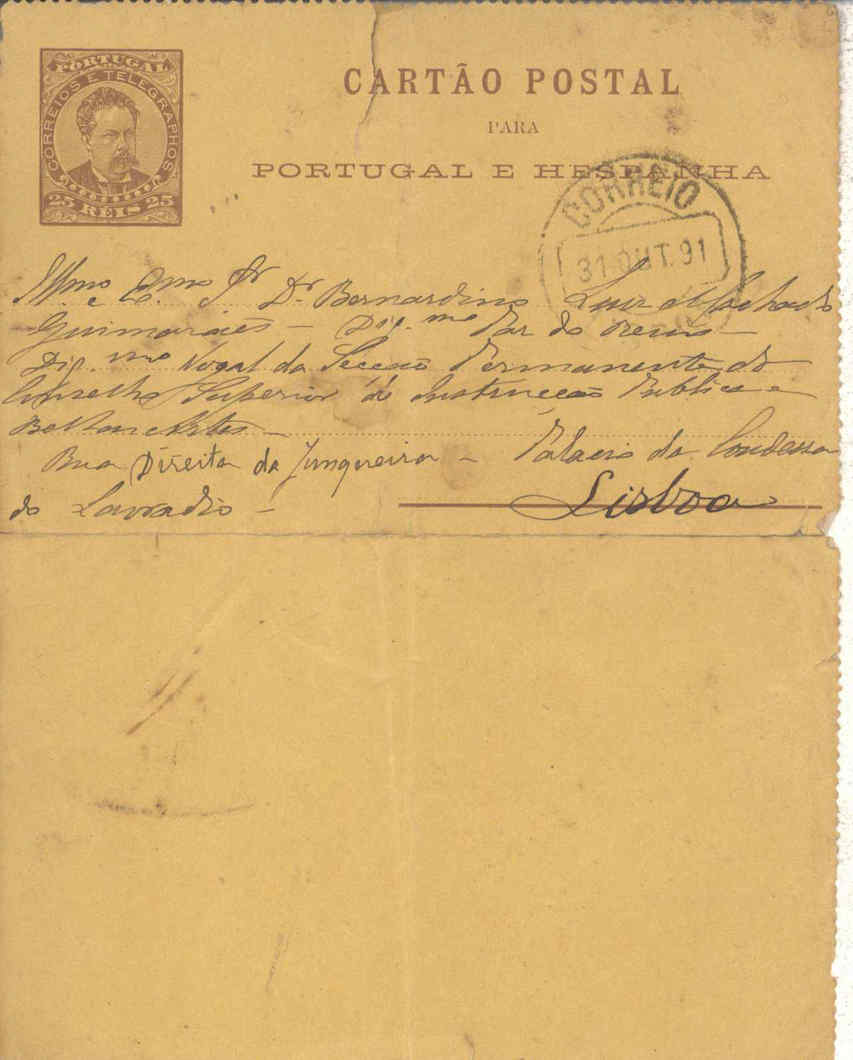 PORTUGAL
CORREIOS E TELEGRAPHOS
25 REIS 25
CARTÃO POSTAL
PARA
PORTUGAL E HESPANHA
CORREIO
31 OUT. 91
Illmo e Exmo Sr Dr Bernardino Luiz Machado
Guimarães – Dig.mo Par do Reino –
Dig.mo Vogal da Secção Permanente do
Conselho Superior de Instrucção Publica e
Bellas Artes –
Rua Direita da Junqueira – Palacio da Condessa
do Lavradio – Lisboa